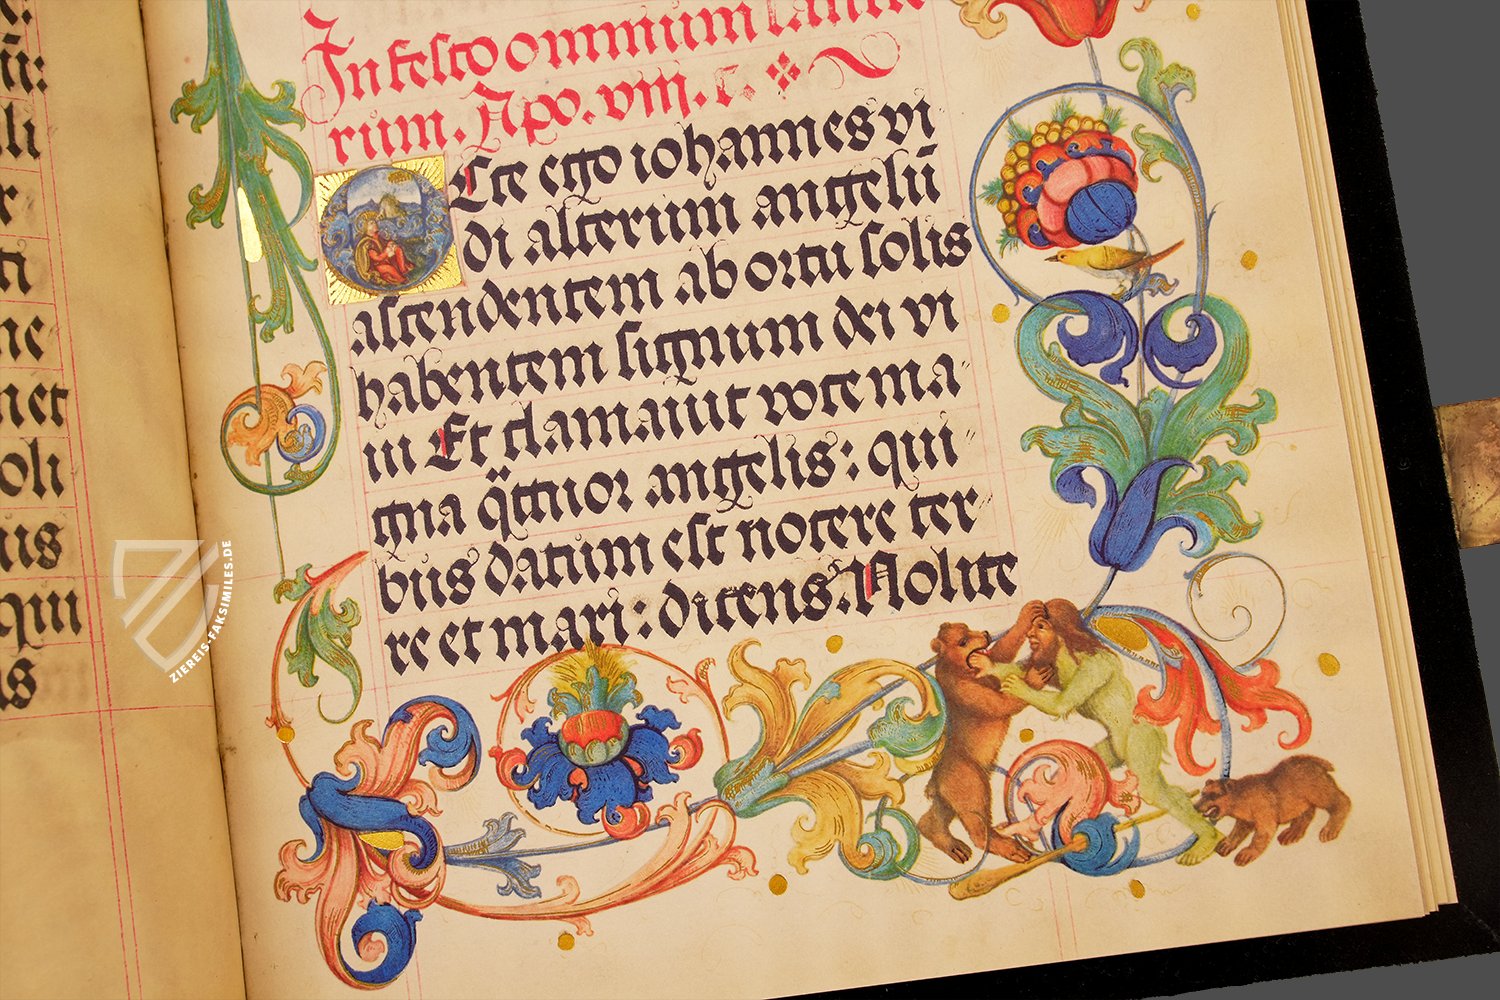 li
ti
ne
net
oli
us
qui
In festo omnium sancto
rum. Apo. viij. c.
ECce ego iohannes vi
di alterum angelū
ascendentem ab ortu solis
habentem signum dei vi
ui Et clamauit voce ma-
gna qttuor angelis: qui-
bus datum est nocere ter-
re et mari: dicens. Nolite
ZIEREIS-FAKSIMILES.DE